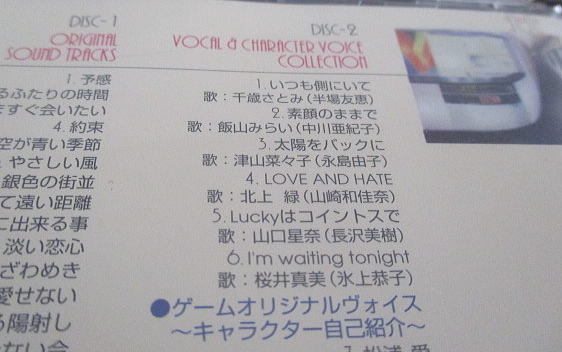 DISC-1
ORIGINAL
SOUND TRACKS
1.予感
るふたりの時間
ますぐ会いたい
4.約束
空が青い季節
やさしい風
銀色の街並
て遠い距離
に出来る事
淡い恋心
ざわめき
愛せない
る陽射し
DISC-2
VOCAL & CHARACTER VOICE
COLLECTION
1.いつも側にいて
歌:千歳さとみ(半場友恵)
2.素顔のままで
歌:飯山みらい(中川亜紀子)
3.太陽をバックに
歌:津山菜々子(永島由子)
4. LOVE AND HATE
歌:北上 緑(山崎和佳奈)
5.Luckyはコイントスで
歌:山口星奈(長沢美樹)
6.I'm waiting tonight
歌:桜井真美(氷上恭子)
●ゲームオリジナルヴォイス
〜キャラクター自己紹介〜